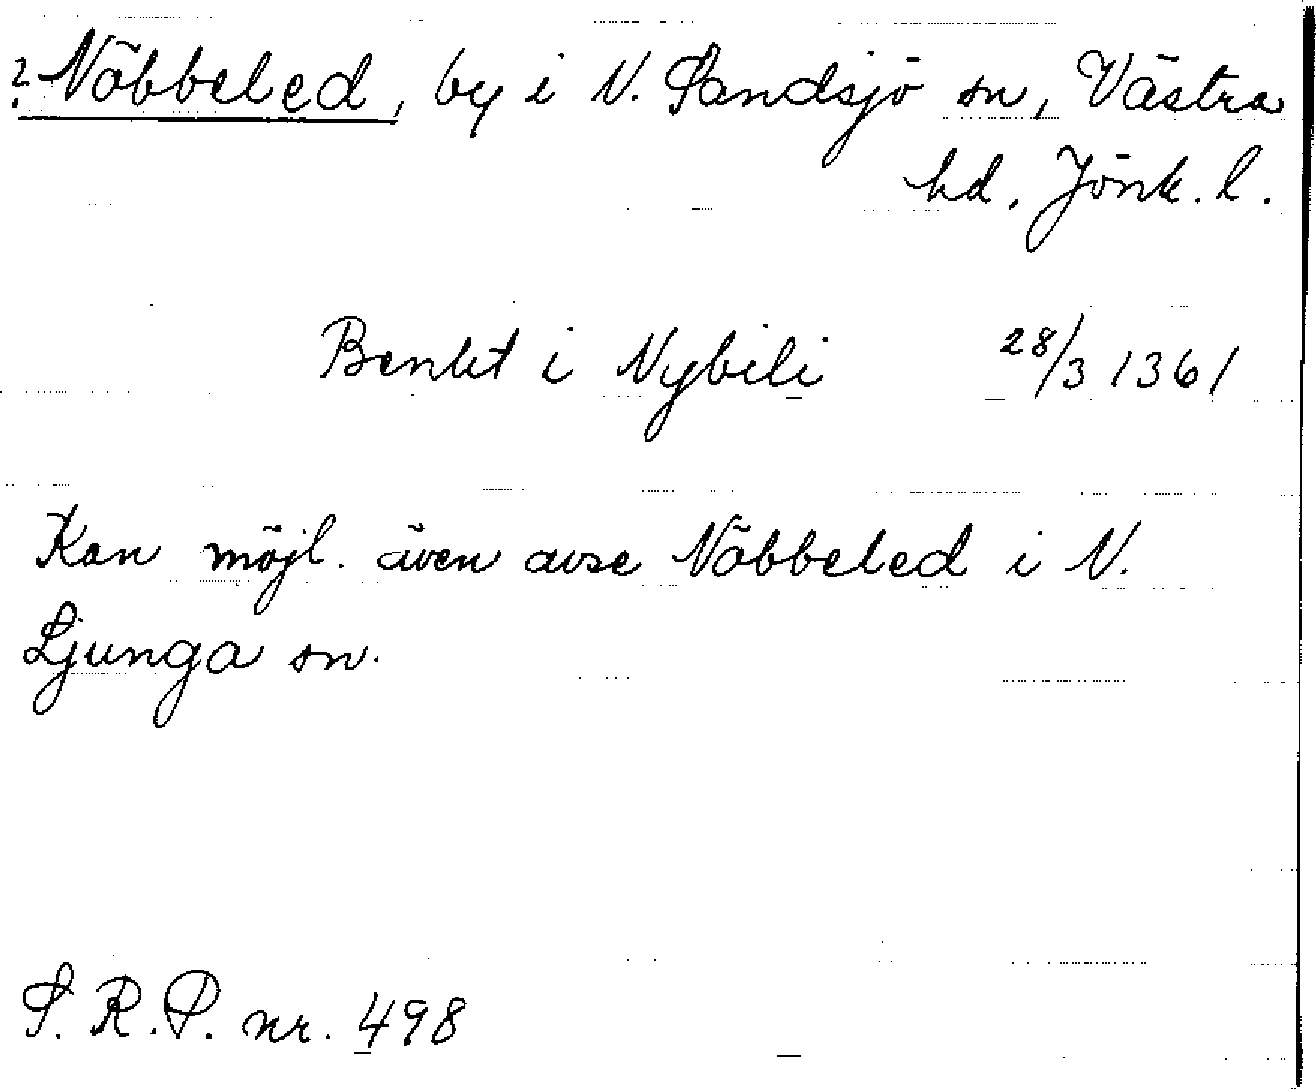 ? Nöbbeled, by i N. Sandsjö sn, Västra
hd. Jönk. l.
Benkt i Nybili 28/3 1361
Kan möjl. även avse Nöbbeled i N.
Ljunga sn.
S. R. P. nr. 498